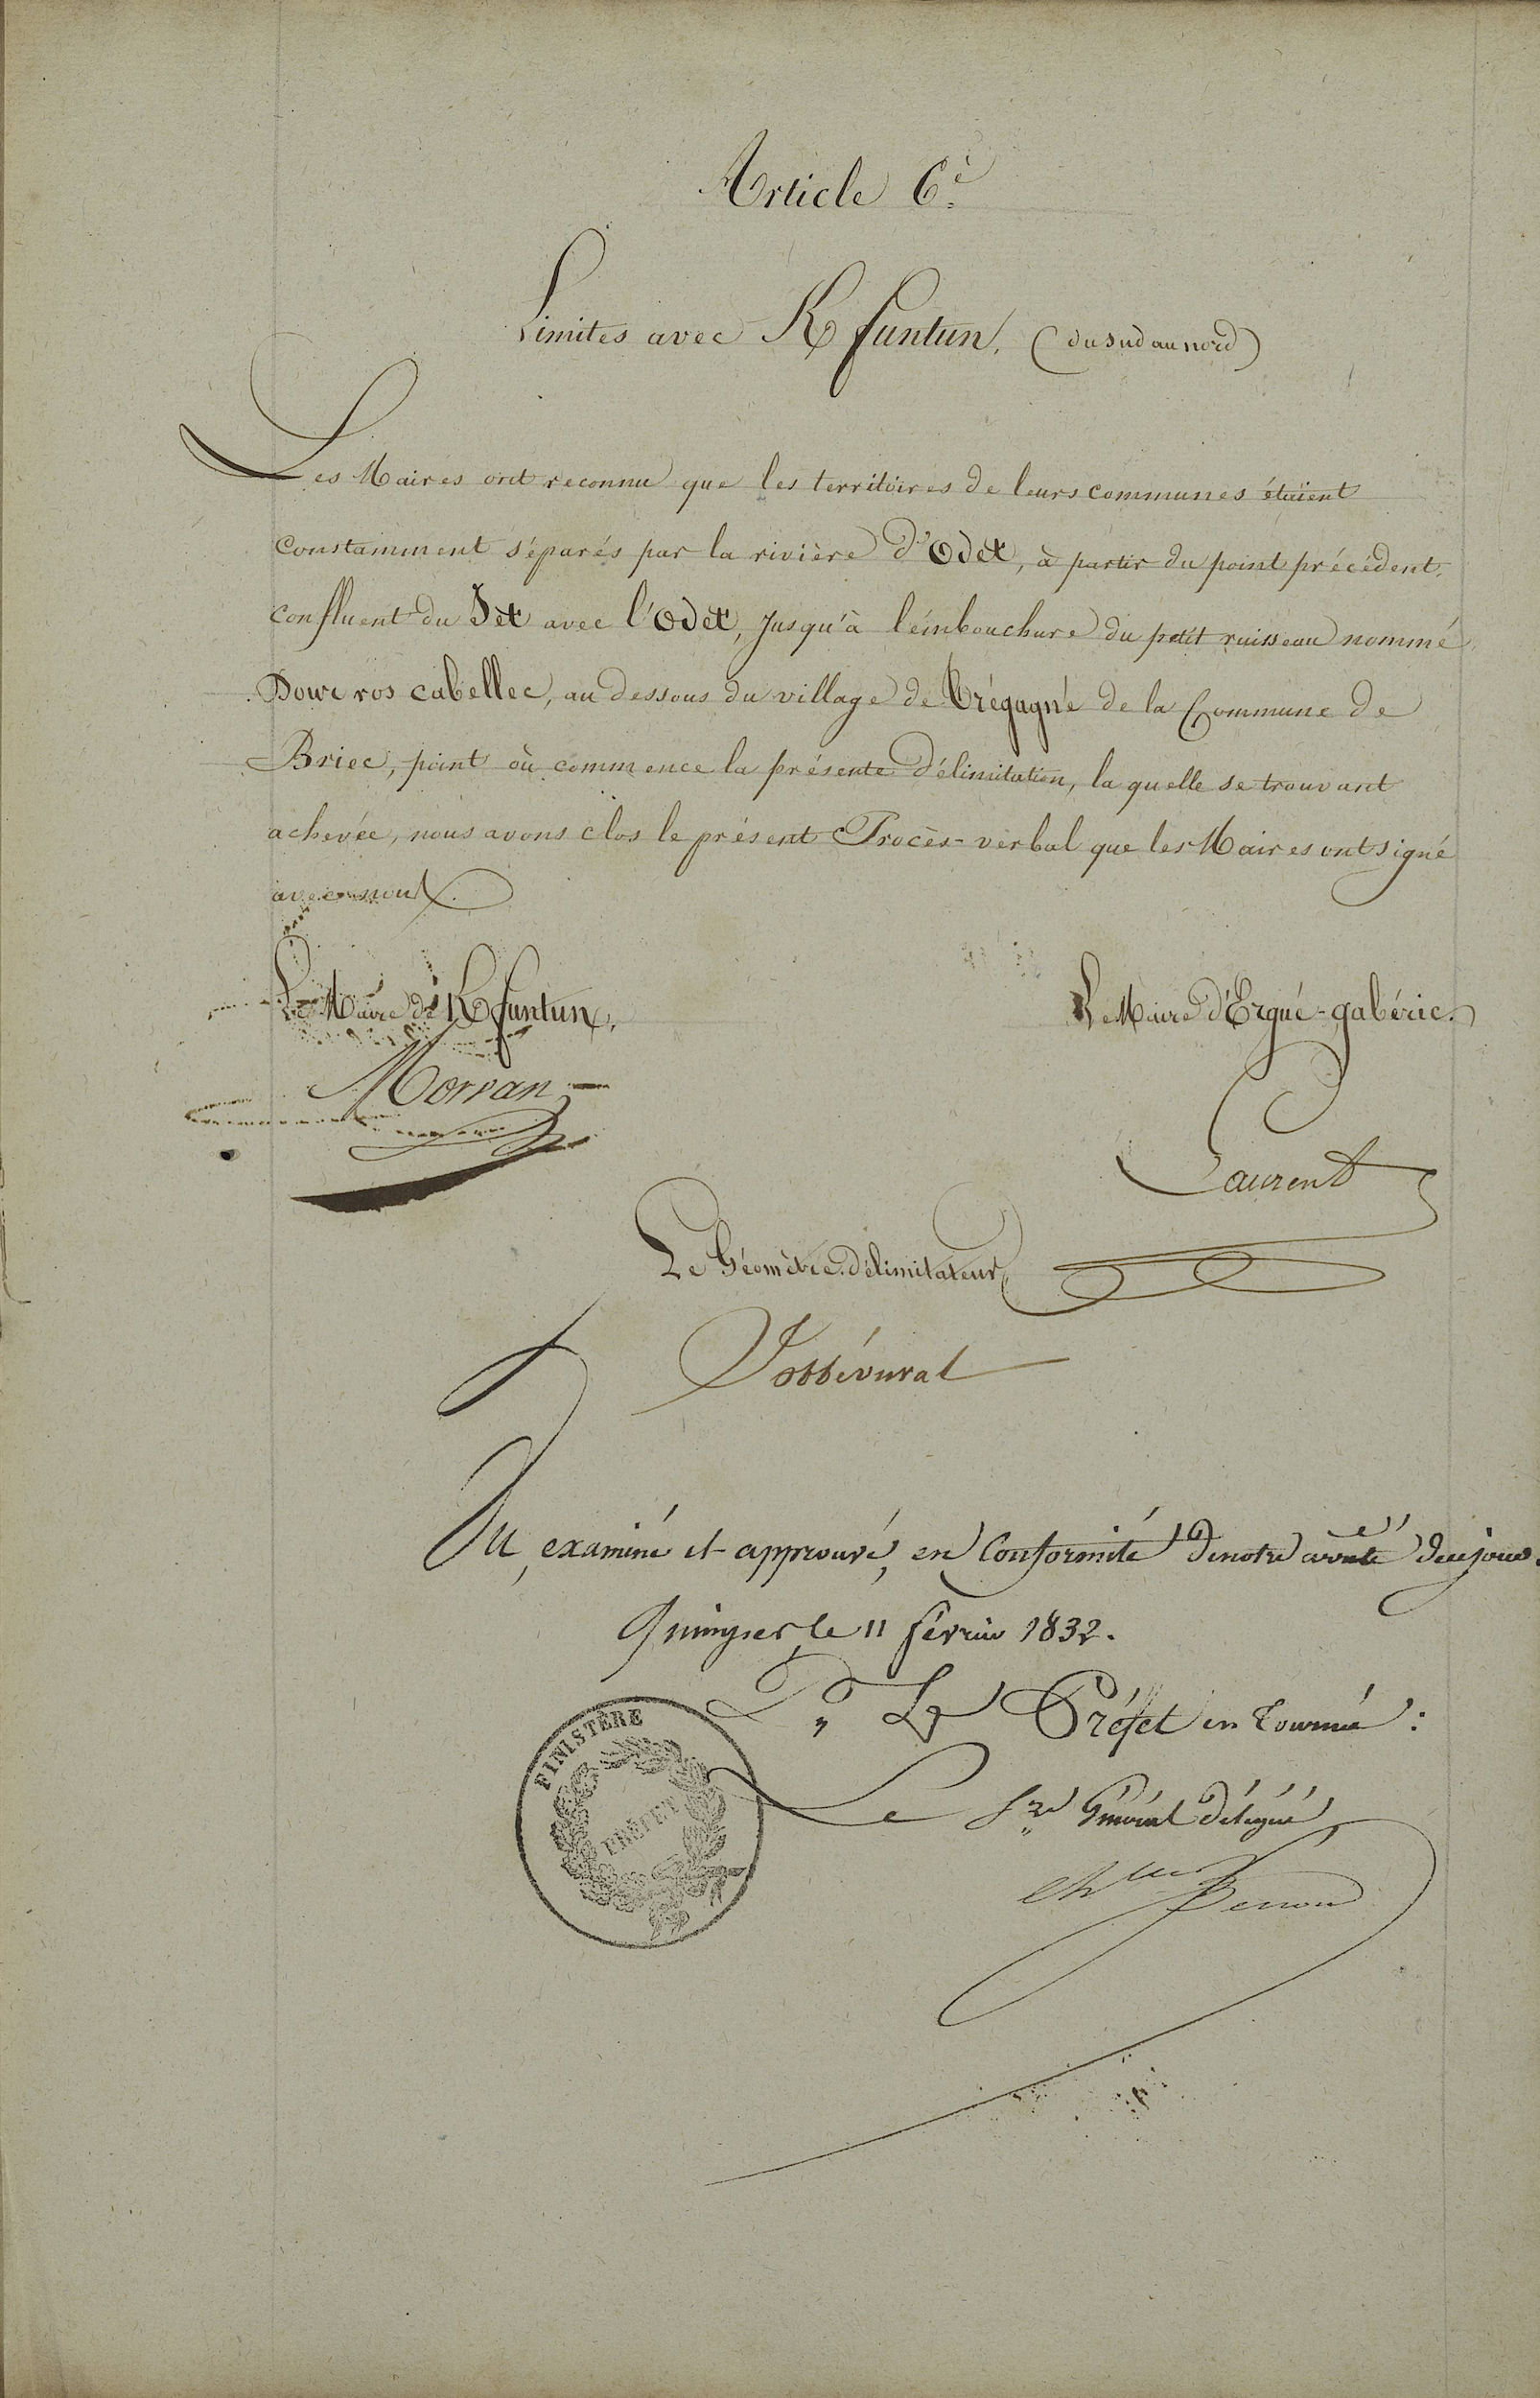 Article 6e
Limites avec K/funtun, (du sud au nord)
Les Maires ont reconnu que les territoires de leurs communes étaient
constamment séparés par la rivière d'Odet, à partir du point précédent,
confluent du Jet avec l'Odet, jusqu'à l'embouchure du petit ruisseau nommé
Dour ros cabellec, au dessous du village de Trégagné de la Commune de
Briec, point où commence la présente délimitation, la quelle se trouvant
achevée, nous avons clos le présent Procès-verbal que les Maires ont signé
avec nous.
Le Maire de K/funtun,
Le Maire d'Ergué-gabéric.
Morvan
Laurent
Le Géomètre délimitateur,
Vu, examiné et approuvé, en Conformité de notre arrêté de ce jour.
Quimper, le 11 février 1832.
Pr Le Préfet en tournée :
Le Sre Général délégué,
FINISTÈRE
PRÉFET